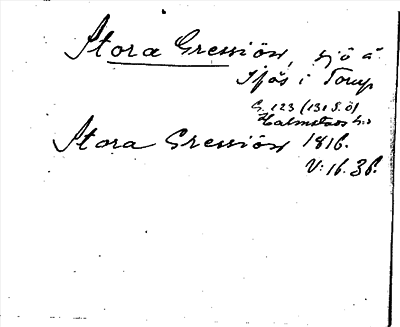 Stora Gressiön, sjö å
i Torup
G. 123 (131 S.Ö)
Halmstads h:s
Stora Gressiön 1816.
V: 16. 36.